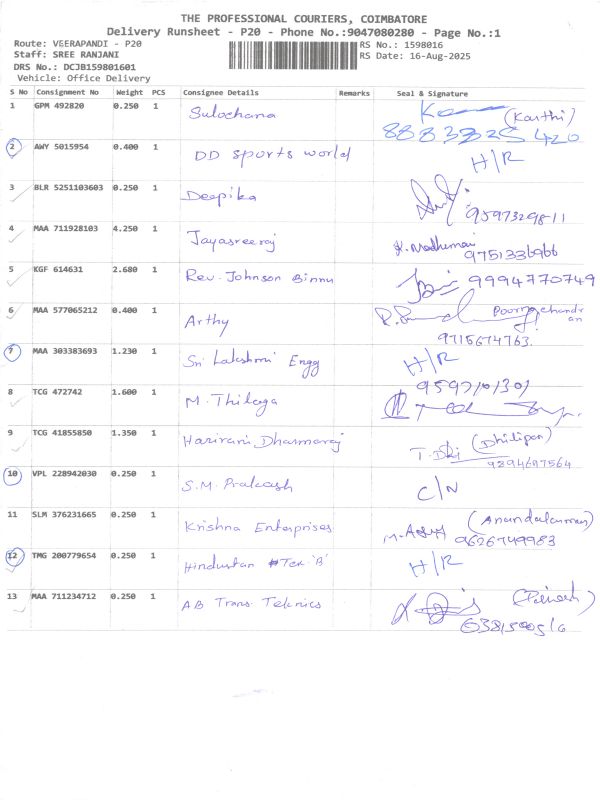 THE PROFESSIONAL COURIERS, COIMBATORE
Delivery Runsheet - P20 - Phone No.:9047080280 - Page No.:1
Route: VEERAPANDI - P20
Staff: SREE RANJANI
DRS No.: DCJB159801601
Vehicle: Office Delivery
RS No.: 1598016
RS Date: 16-Aug-2025
S No Consignment No Weight PCS Consignee Details Remarks Seal & Signature
1 GPM 492820 0.250 1 Sulochana (Karthi)
8883325420
2 AWY 5015954 0.400 1 DD sports world H/R
3 BLR 5251103603 0.250 1 Deepika
9597329811
4 MAA 711928103 4.250 1 Jayasreeraj K. Madhumai
9751336966
5 KGF 614631 2.680 1 Rev. Johnson Binnu 9994770749
6 MAA 577065212 0.400 1 Arthy Poornachandran
9715674763.
7 MAA 303383693 1.230 1 Sri Lakshmi Engg H/R
8 TCG 472742 1.600 1 M. Thilaga 9597101301
9 TCG 41855850 1.350 1 Harirani Dharmaraj (Dhilipan)
9894697564
10 VPL 228942030 0.250 1 S.M. Prakash C/N
11 SLM 376231665 0.250 1 Krishna Enterprises (Anandalamman)
9626749983
12 TMG 200779654 0.250 1 Hindustan Tex 'B' H/R
13 MAA 711234712 0.250 1 AB Trans Teknics